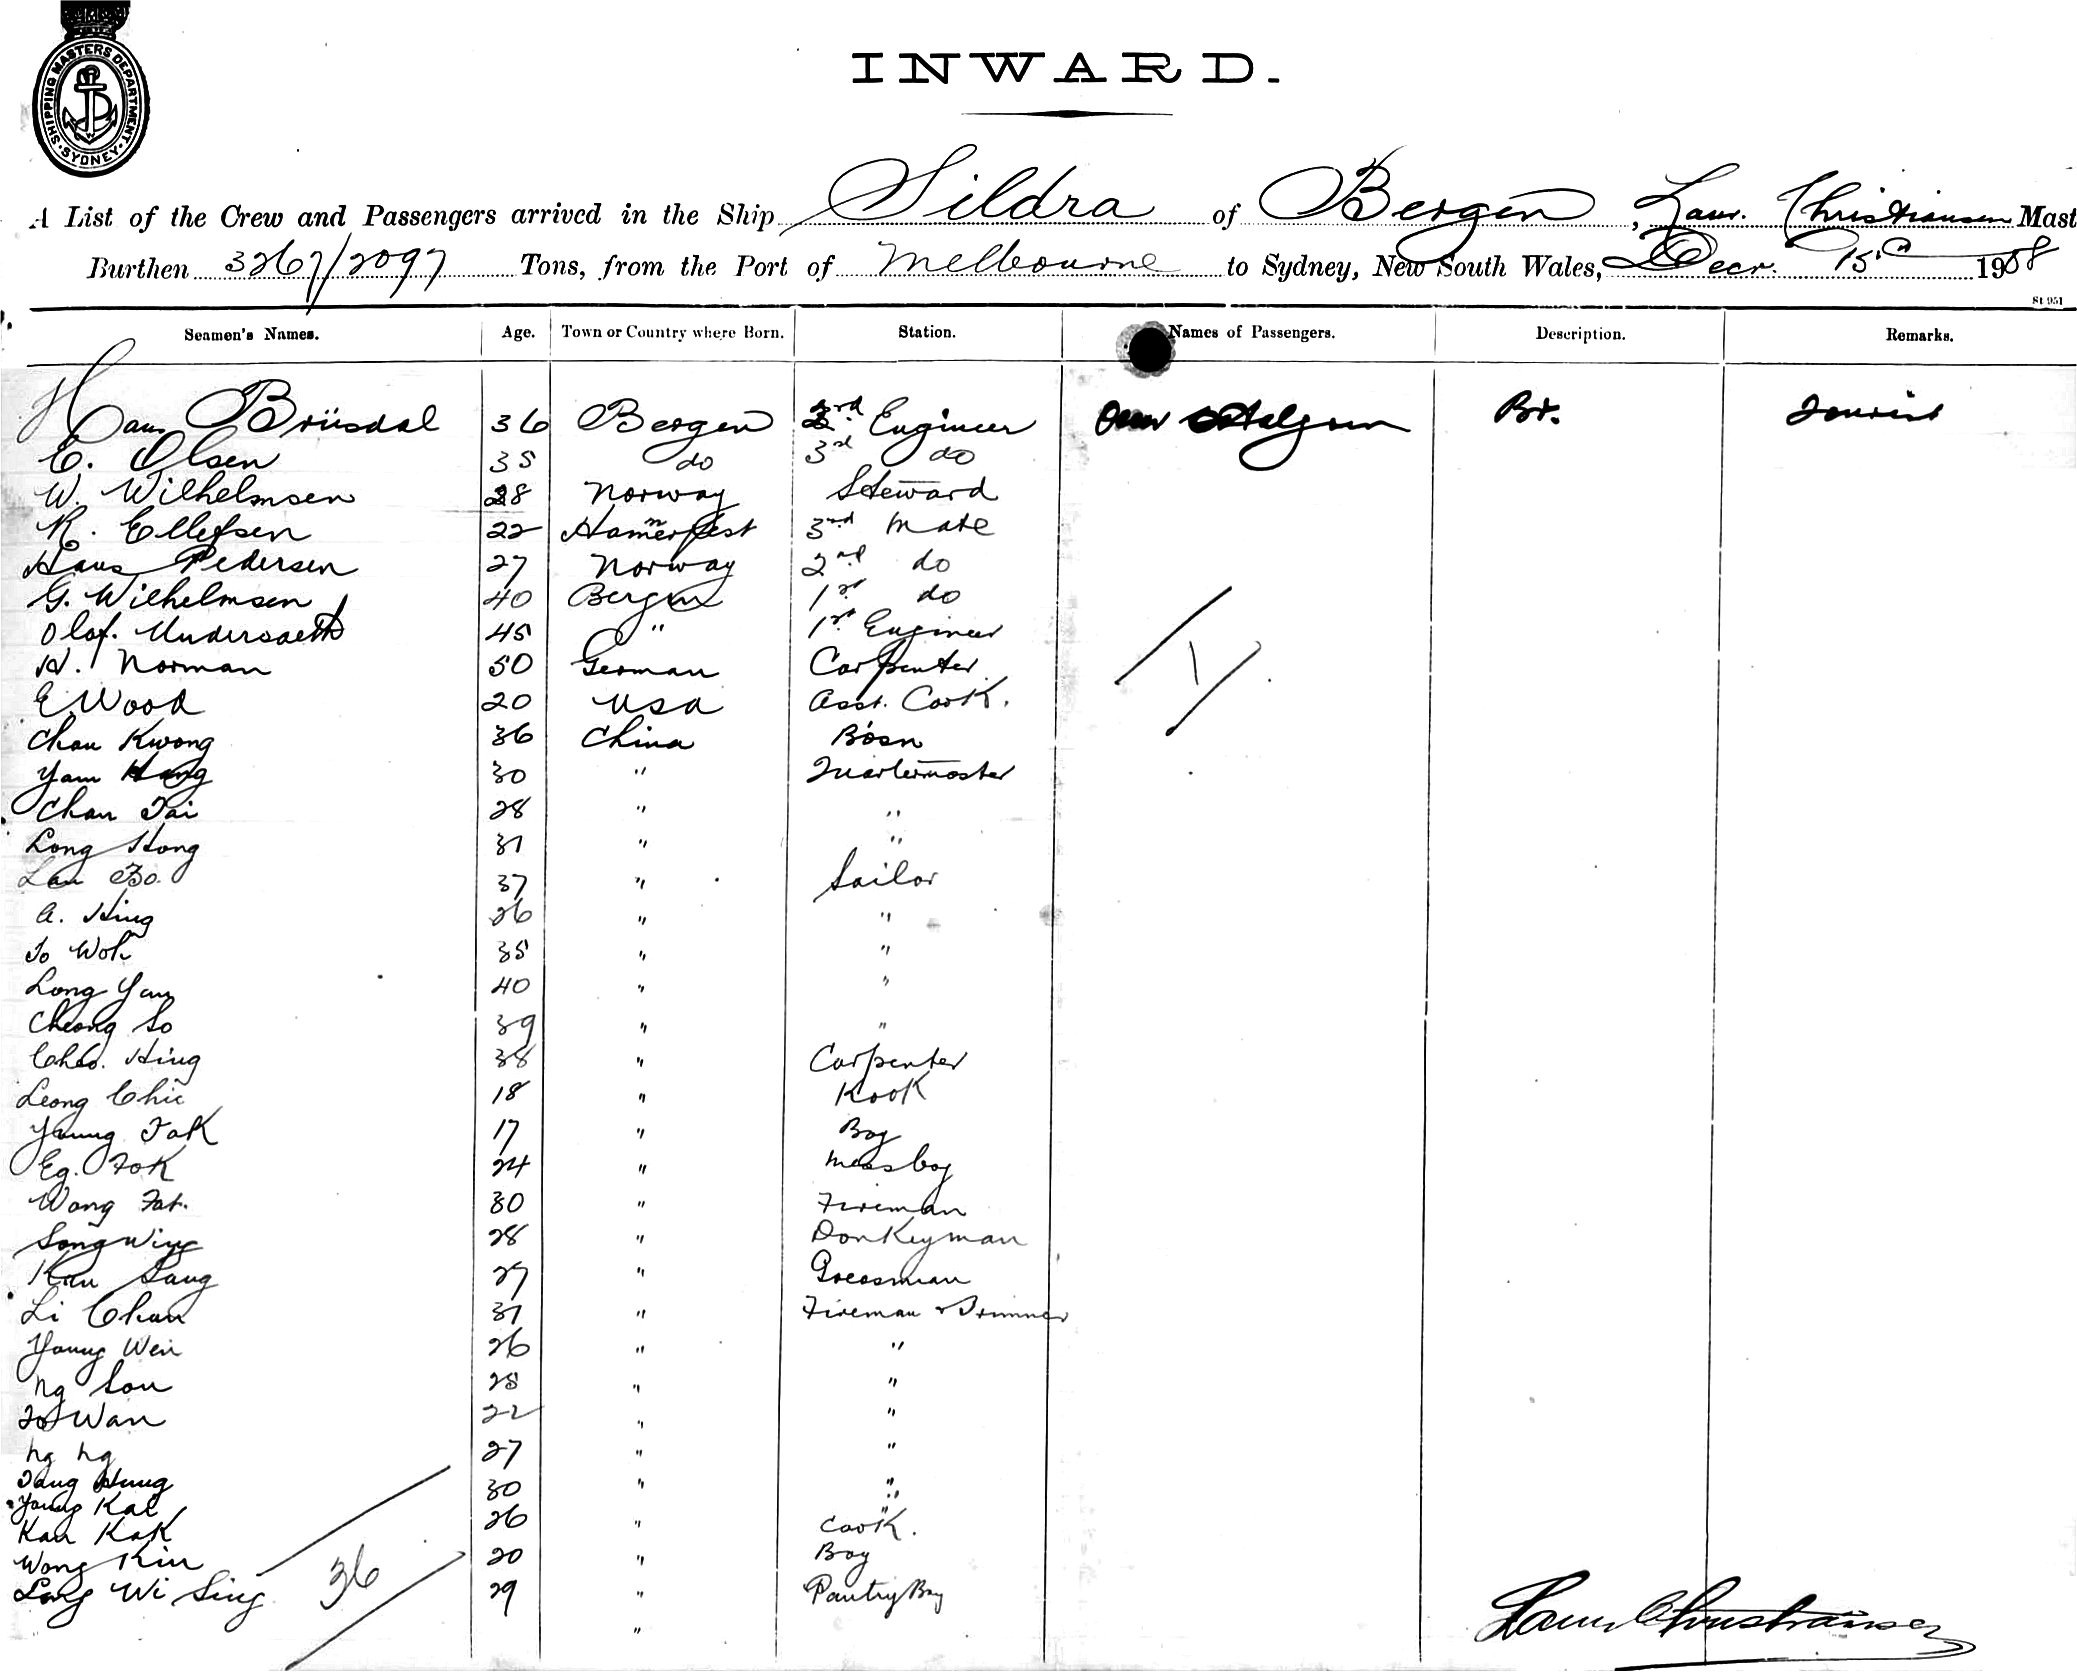 SHIPPING MASTERS DEPARTMENT · SYDNEY ·
INWARD.
A List of the Crew and Passengers arrived in the Ship Sildra of Bergen, Laur. Christiansen Mast
Burthen 3267/2097 Tons, from the Port of Melbourne to Sydney, New South Wales, Decr. 15 1908
St 951
Seamen's Names. Age. Town or Country where Born. Station. Names of Passengers. Description. Remarks.
Hans Brüsdal 36 Bergen 2rd Engineer Br. Tourist
E. Olsen 35 do 3rd do
W. Wilhelmsen 28 Norway Steward
R. Ellefsen 22 Hammerfest 3rd Mate
Hans Pedersen 27 Norway 2nd do
G. Wilhelmsen 40 Bergen 1st do
Olaf. 45 " 1st Engineer
H. Norman 50 German Carpenter
E Wood 20 USA Asst. Cook.
Chau Kwong 36 China Bosn
Yam 30 " Quartermaster
Chan Tai 28 " "
Long Hong 31 " "
Lau Bo. 37 " Sailor
A. Hing 26 " "
To Wok 35 " "
Long Yau 40 " "
Cheong So 39 " "
Cheo. Hing 38 " Carpenter
Leong Chie 18 " Kook
Young Tak 17 " Boy
Eg. Fok 24 " Messboy
Wong Fat. 30 " Fireman
Song Wing 28 " Donkeyman
Kau Sang 27 " Greasman
Li Chau 31 " Fireman & Trimmer
Young Wei 26 " "
Ng Sou 28 " "
To Wan 22 " "
Ng Ng 27 " "
Tang Hung 30 " "
Young Kai "
Kau Kak 26 " Cook.
Wong Kin 20 " Boy
Long Wi Sing 29 " Pantry Boy
"
1
36
Laur Christiansen